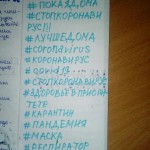 #ПОКАЯДОМА
#СТОПКОРОНАВИ
РУС!!!
#ЛУЧШЕДОМА
#coronavirus
#КОРОНАВИРУС
#covid
#СТОПКОРОНАВИРУС
#ЗДОРОВЬЕВПРИОРИ
ТЕТЕ
#КАРАНТИН
#ПАНДЕМИЯ
#МАСКА
#РЕСПИРАТОР